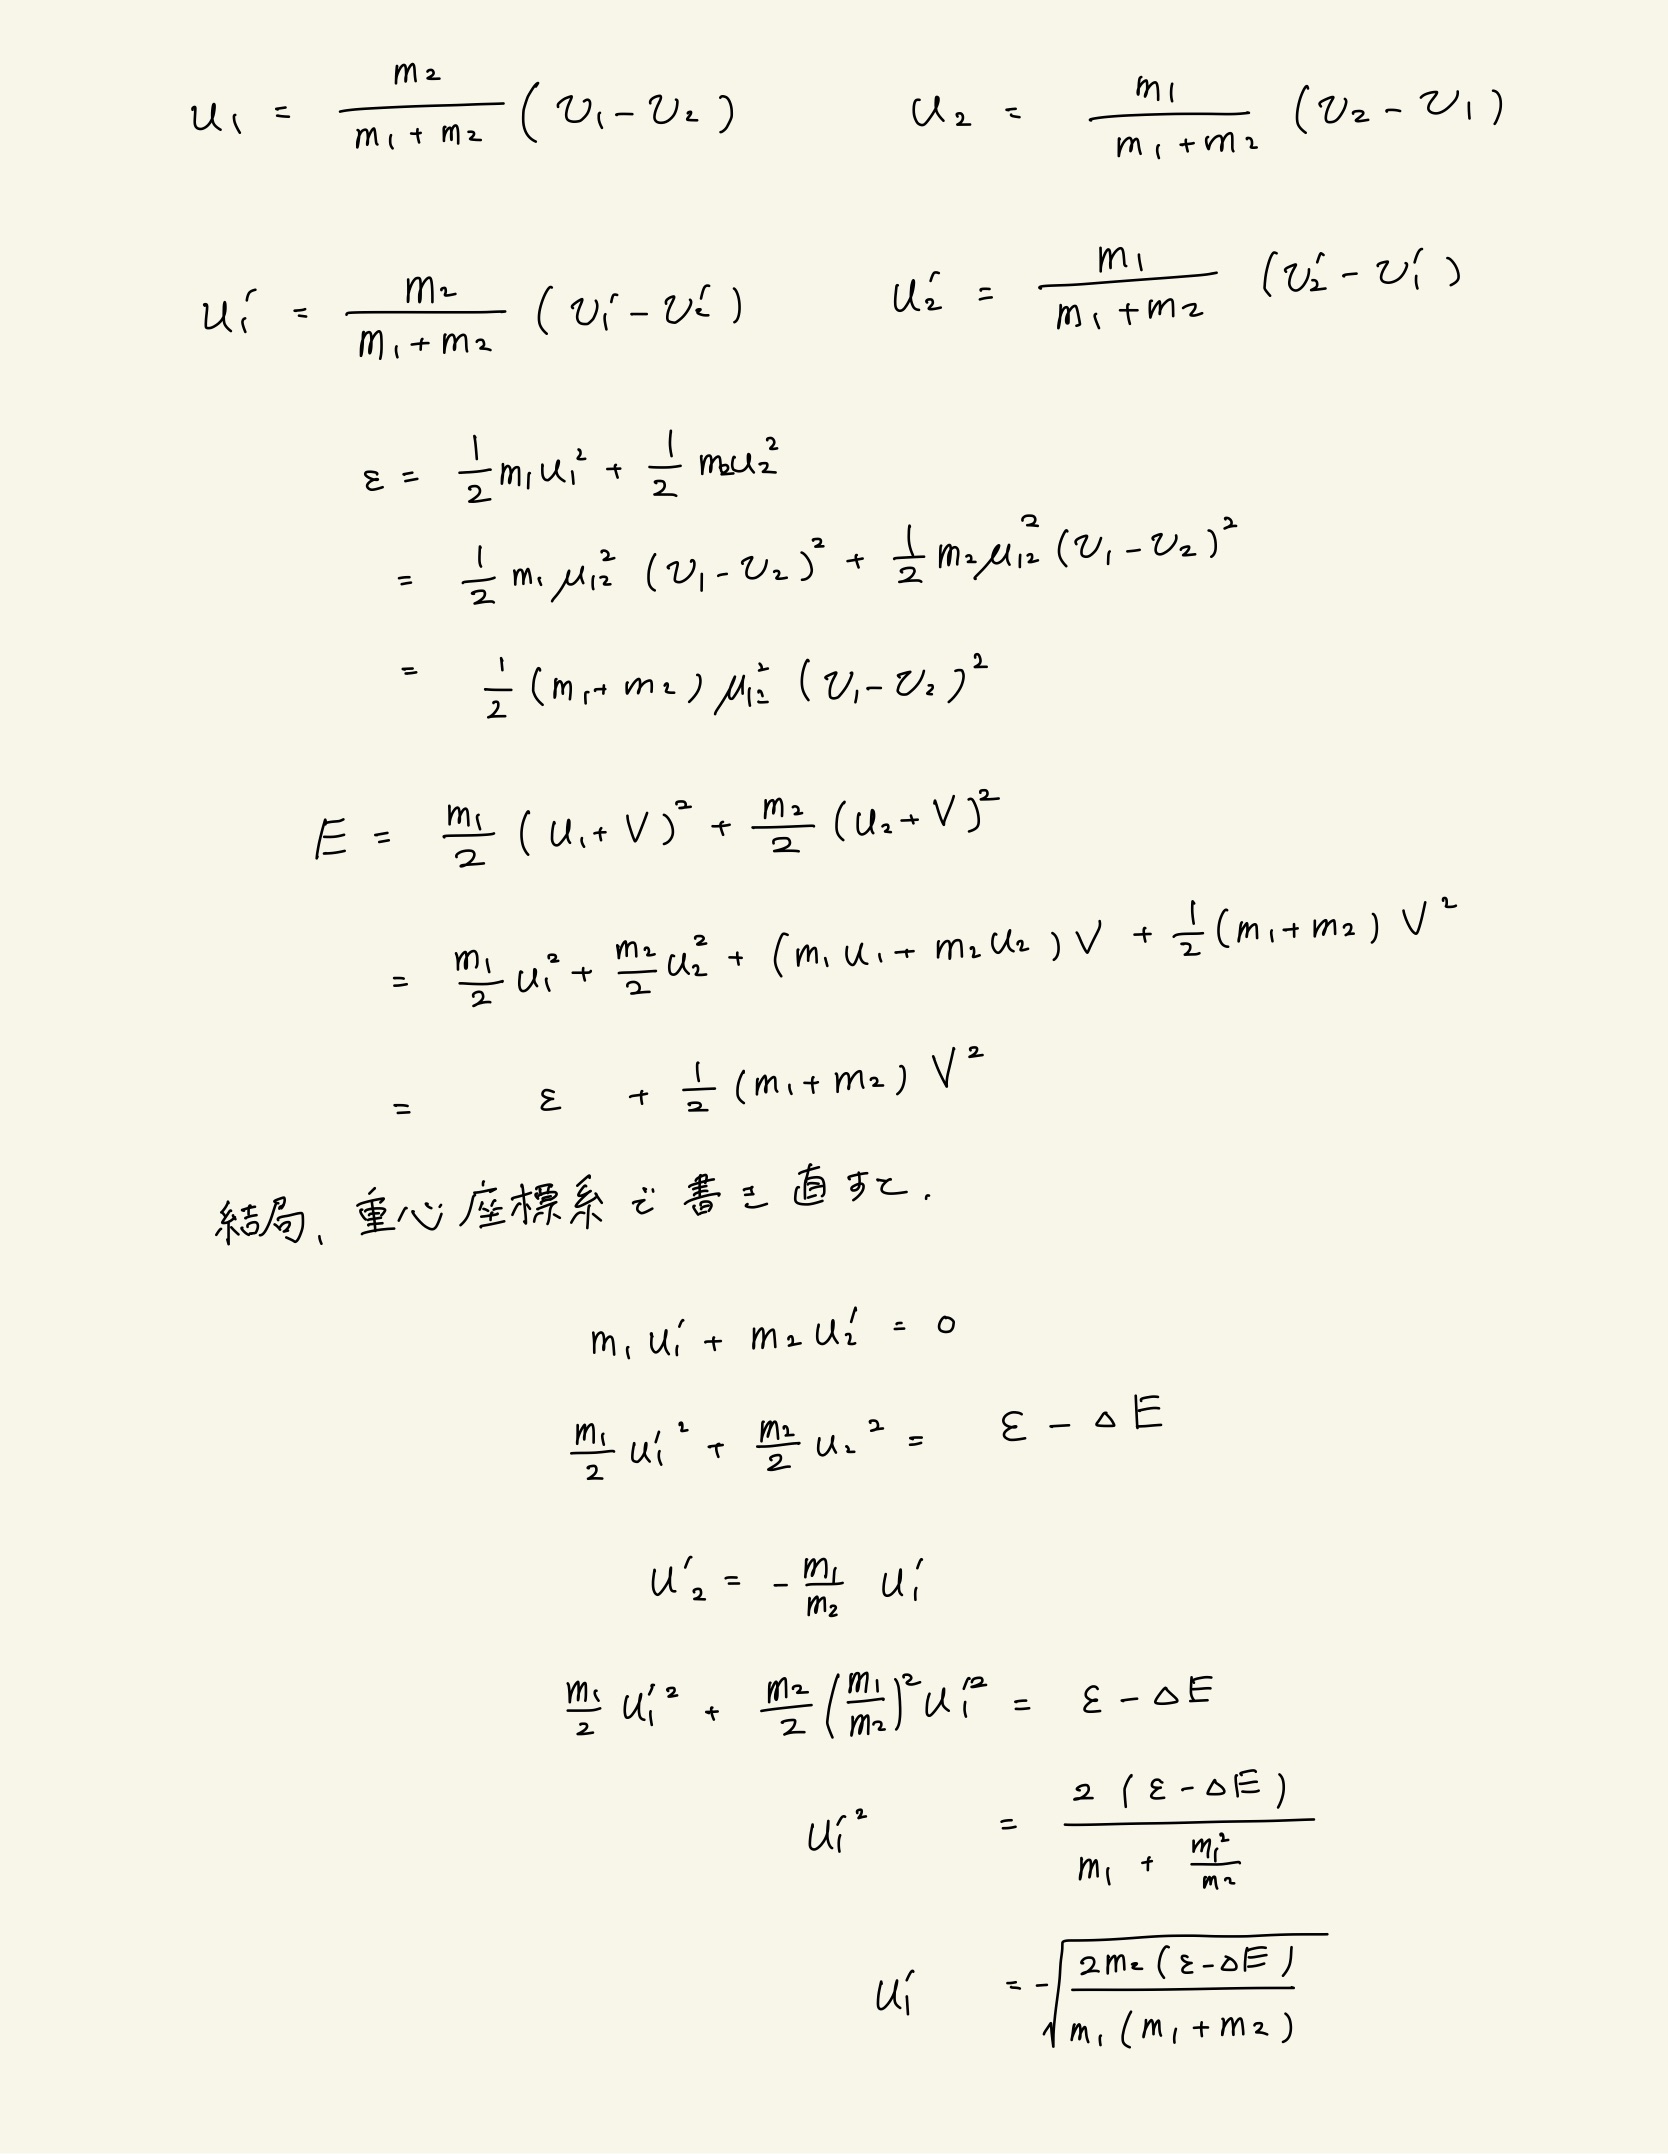 u₁ = m₂/(m₁ + m₂) (v₁ - v₂)    u₂ = m₁/(m₁ + m₂) (v₂ - v₁)
u₁′ = m₂/(m₁ + m₂) (v₁′ - v₂′)    u₂′ = m₁/(m₁ + m₂) (v₂′ - v₁′)
ε = 1/2 m₁u₁² + 1/2 m₂u₂²
= 1/2 m₁ μ₁₂² (v₁ - v₂)² + 1/2 m₂ μ₁₂² (v₁ - v₂)²
= 1/2 (m₁ + m₂) μ₁₂² (v₁ - v₂)²
E = m₁/2 (u₁ + V)² + m₂/2 (u₂ + V)²
= m₁/2 u₁² + m₂/2 u₂² + (m₁u₁ + m₂u₂)V + 1/2 (m₁ + m₂) V²
= ε + 1/2 (m₁ + m₂) V²
結局、重心座標系で書き直すと.
m₁u₁′ + m₂u₂′ = 0
m₁/2 u₁′² + m₂/2 u₂² = ε - ΔE
u′₂ = - m₁/m₂ u₁′
m₁/2 u₁′² + m₂/2 (m₁/m₂)² u₁′² = ε - ΔE
u₁′² = 2(ε - ΔE)/(m₁ + m₁²/m₂)
u₁′ = -√(2m₂(ε - ΔE)/(m₁(m₁ + m₂)))